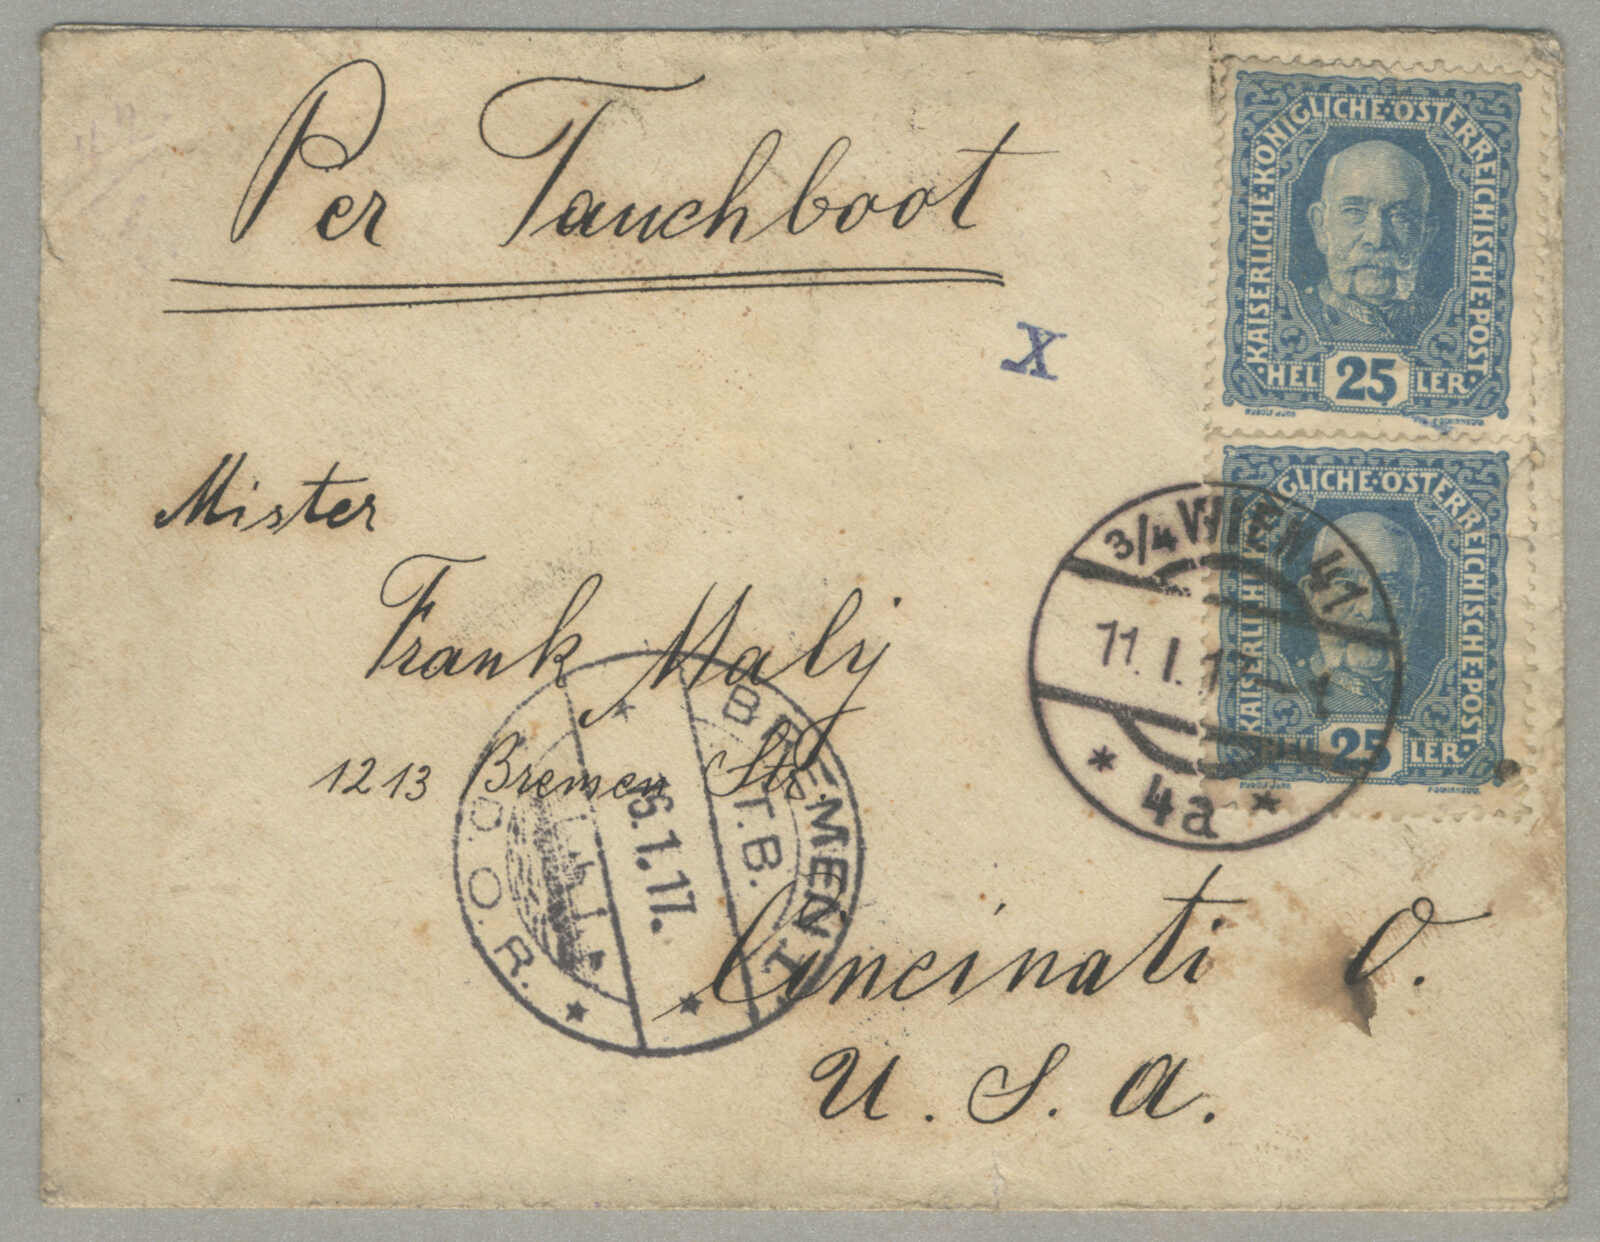 Per Tauchboot
KAISERLICHE·KÖNIGLICHE·ÖSTERREICHISCHE·POST·
·HEL 25 LER·
X
GLICHE·ÖSTERREICHISCHE·POST·
25 LER·
3/4 WIEN 41
11.I.17
4a
Mister
Frank Maly
1213 Bremen Str.
BREMEN 1.
T.B.
16.1.17.
D.O.R.
Cincinati O.
U. S. A.